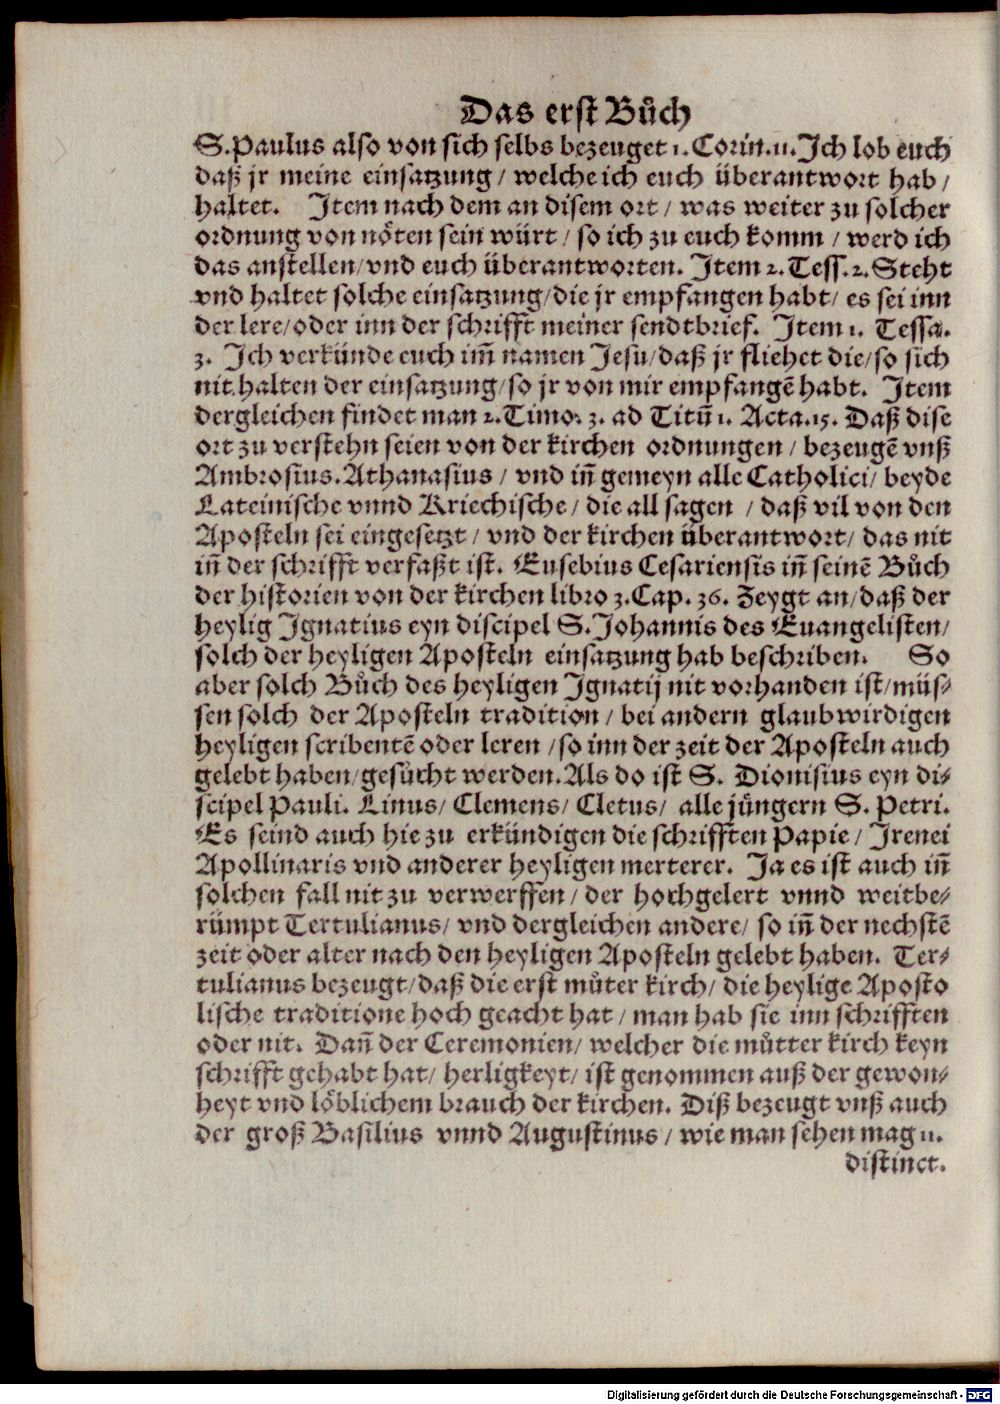 Das erst Bůch
S. Paulus also von sich selbs bezeuget 1. Corin. 11. Ich lob euch
daß jr meine einsatzung / welche ich euch überantwort hab /
haltet. Item nach dem an disem ort / was weiter zu solcher
ordnung von nöten sein würt / so ich zu euch komm / werd ich
das anstellen / vnd euch überantworten. Item 2. Tess. 2. Steht
vnd haltet solche einsatzung / die jr empfangen habt / es sei inn
der lere / oder inn der schrifft meiner sendtbrief. Item 1. Tessa.
3. Ich verkünde euch im̃ namen Jesu / daß jr fliehet die / so sich
nit halten der einsatzung / so jr von mir empfangẽ habt. Item
dergleichen findet man 2. Timo. 3. ad Titũ 1. Acta. 15. Daß dise
ort zu verstehn seien von der kirchen ordnungen / bezeugẽ vnß
Ambrosius. Athanasius / vnd iñ gemeyn alle Catholici / beyde
Lateinische vnnd Kriechische / die all sagen / daß vil von den
Aposteln sei eingesetzt / vnd der kirchen überantwort / das nit
iñ der schrifft verfaßt ist. Eusebius Cesariensis iñ seinẽ Bůch
der historien von der kirchen libro 3. Cap. 36. Zeygt an / daß der
heylig Ignatius eyn discipel S. Johannis des Euangelisten /
solch der heyligen Aposteln einsatzung hab beschriben. So
aber solch Bůch des heyligen Ignatij nit vorhanden ist / müs⸗
sen solch der Aposteln tradition / bei andern glaubwirdigen
heyligen scribentẽ oder leren / so inn der zeit der Aposteln auch
gelebt haben / gesůcht werden. Als do ist S. Dionisius eyn di⸗
scipel Pauli. Linus / Clemens / Cletus / alle jüngern S. Petri.
Es seind auch hie zu erkündigen die schrifften Papie / Irenei
Apollinaris vnd anderer heyligen merterer. Ja es ist auch iñ
solchen fall nit zu verwerffen / der hochgelert vnnd weitbe⸗
rümpt Tertulianus / vnd dergleichen andere / so iñ der nechstẽ
zeit oder alter nach den heyligen Aposteln gelebt haben. Ter⸗
tulianus bezeugt / daß die erst můter kirch / die heylige Aposto
lische traditione hoch geacht hat / man hab sie inn schrifften
oder nit. Dañ der Ceremonien / welcher die můtter kirch keyn
schrifft gehabt hat / herligkeyt / ist genommen auß der gewon⸗
heyt vnd löblichem brauch der kirchen. Diß bezeugt vnß auch
der groß Basilius vnnd Augustinus / wie man sehen mag 11.
distinct.
Digitalisierung gefördert durch die Deutsche Forschungsgemeinschaft - DFG